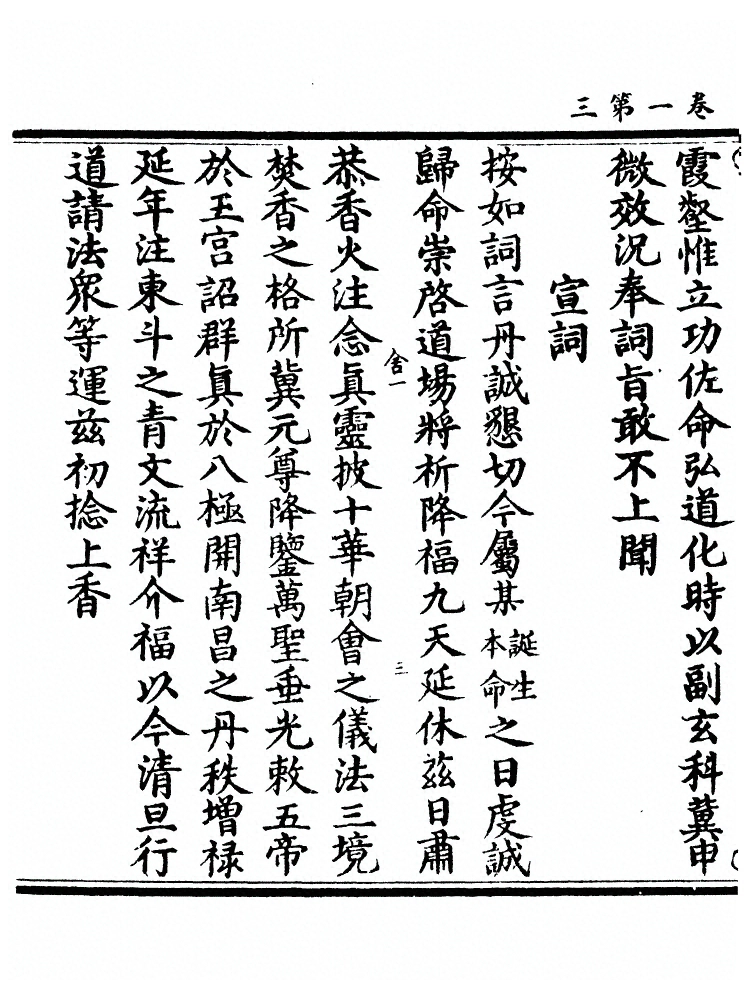 卷一第三
霞壑惟立功佐命弘道化時以副玄科冀申
微效況奉詞旨敢不上聞
宣詞
按如詞言丹誠懇切今屬某誕生本命之日虔誠
歸命崇啓道場將祈降福九天延休兹日肅
舍一
三
恭香火注念眞靈披十華朝會之儀法三境
焚香之格所冀元尊降鑒萬聖垂光敕五帝
於王宮詔群眞於八極開南昌之丹秩增祿
延年注東斗之青文流祥介福以今清旦行
道請法衆等運兹初捻上香